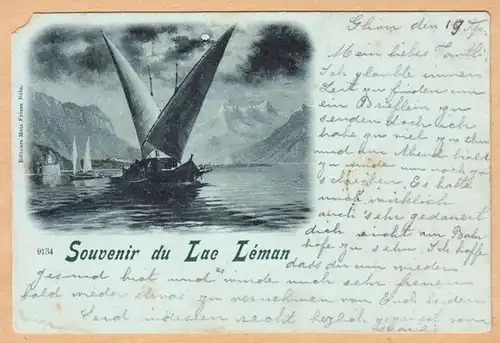 Glion den 19
Mein liebes Tantli!
Ich glaubte immer
Zeit zu finden um
ein Brieflein zu
senden doch ich
habe zu viel zu thun
und am Abend
zu müde um noch zu
schreiben. Es hatte
mich wirklich
auch sehr gedauert
dich nicht am Bahn
hofe zu sehn. Ich hoffe
dass du nun wieder
gesund bist und würde mich sehr freuen
bald wieder etwas zu vernehmen von Euch beiden
Seid indessen recht herzlich gegrüsst von
Editeurs Metz Frères Bâle.
9134
Souvenir du Lac Léman